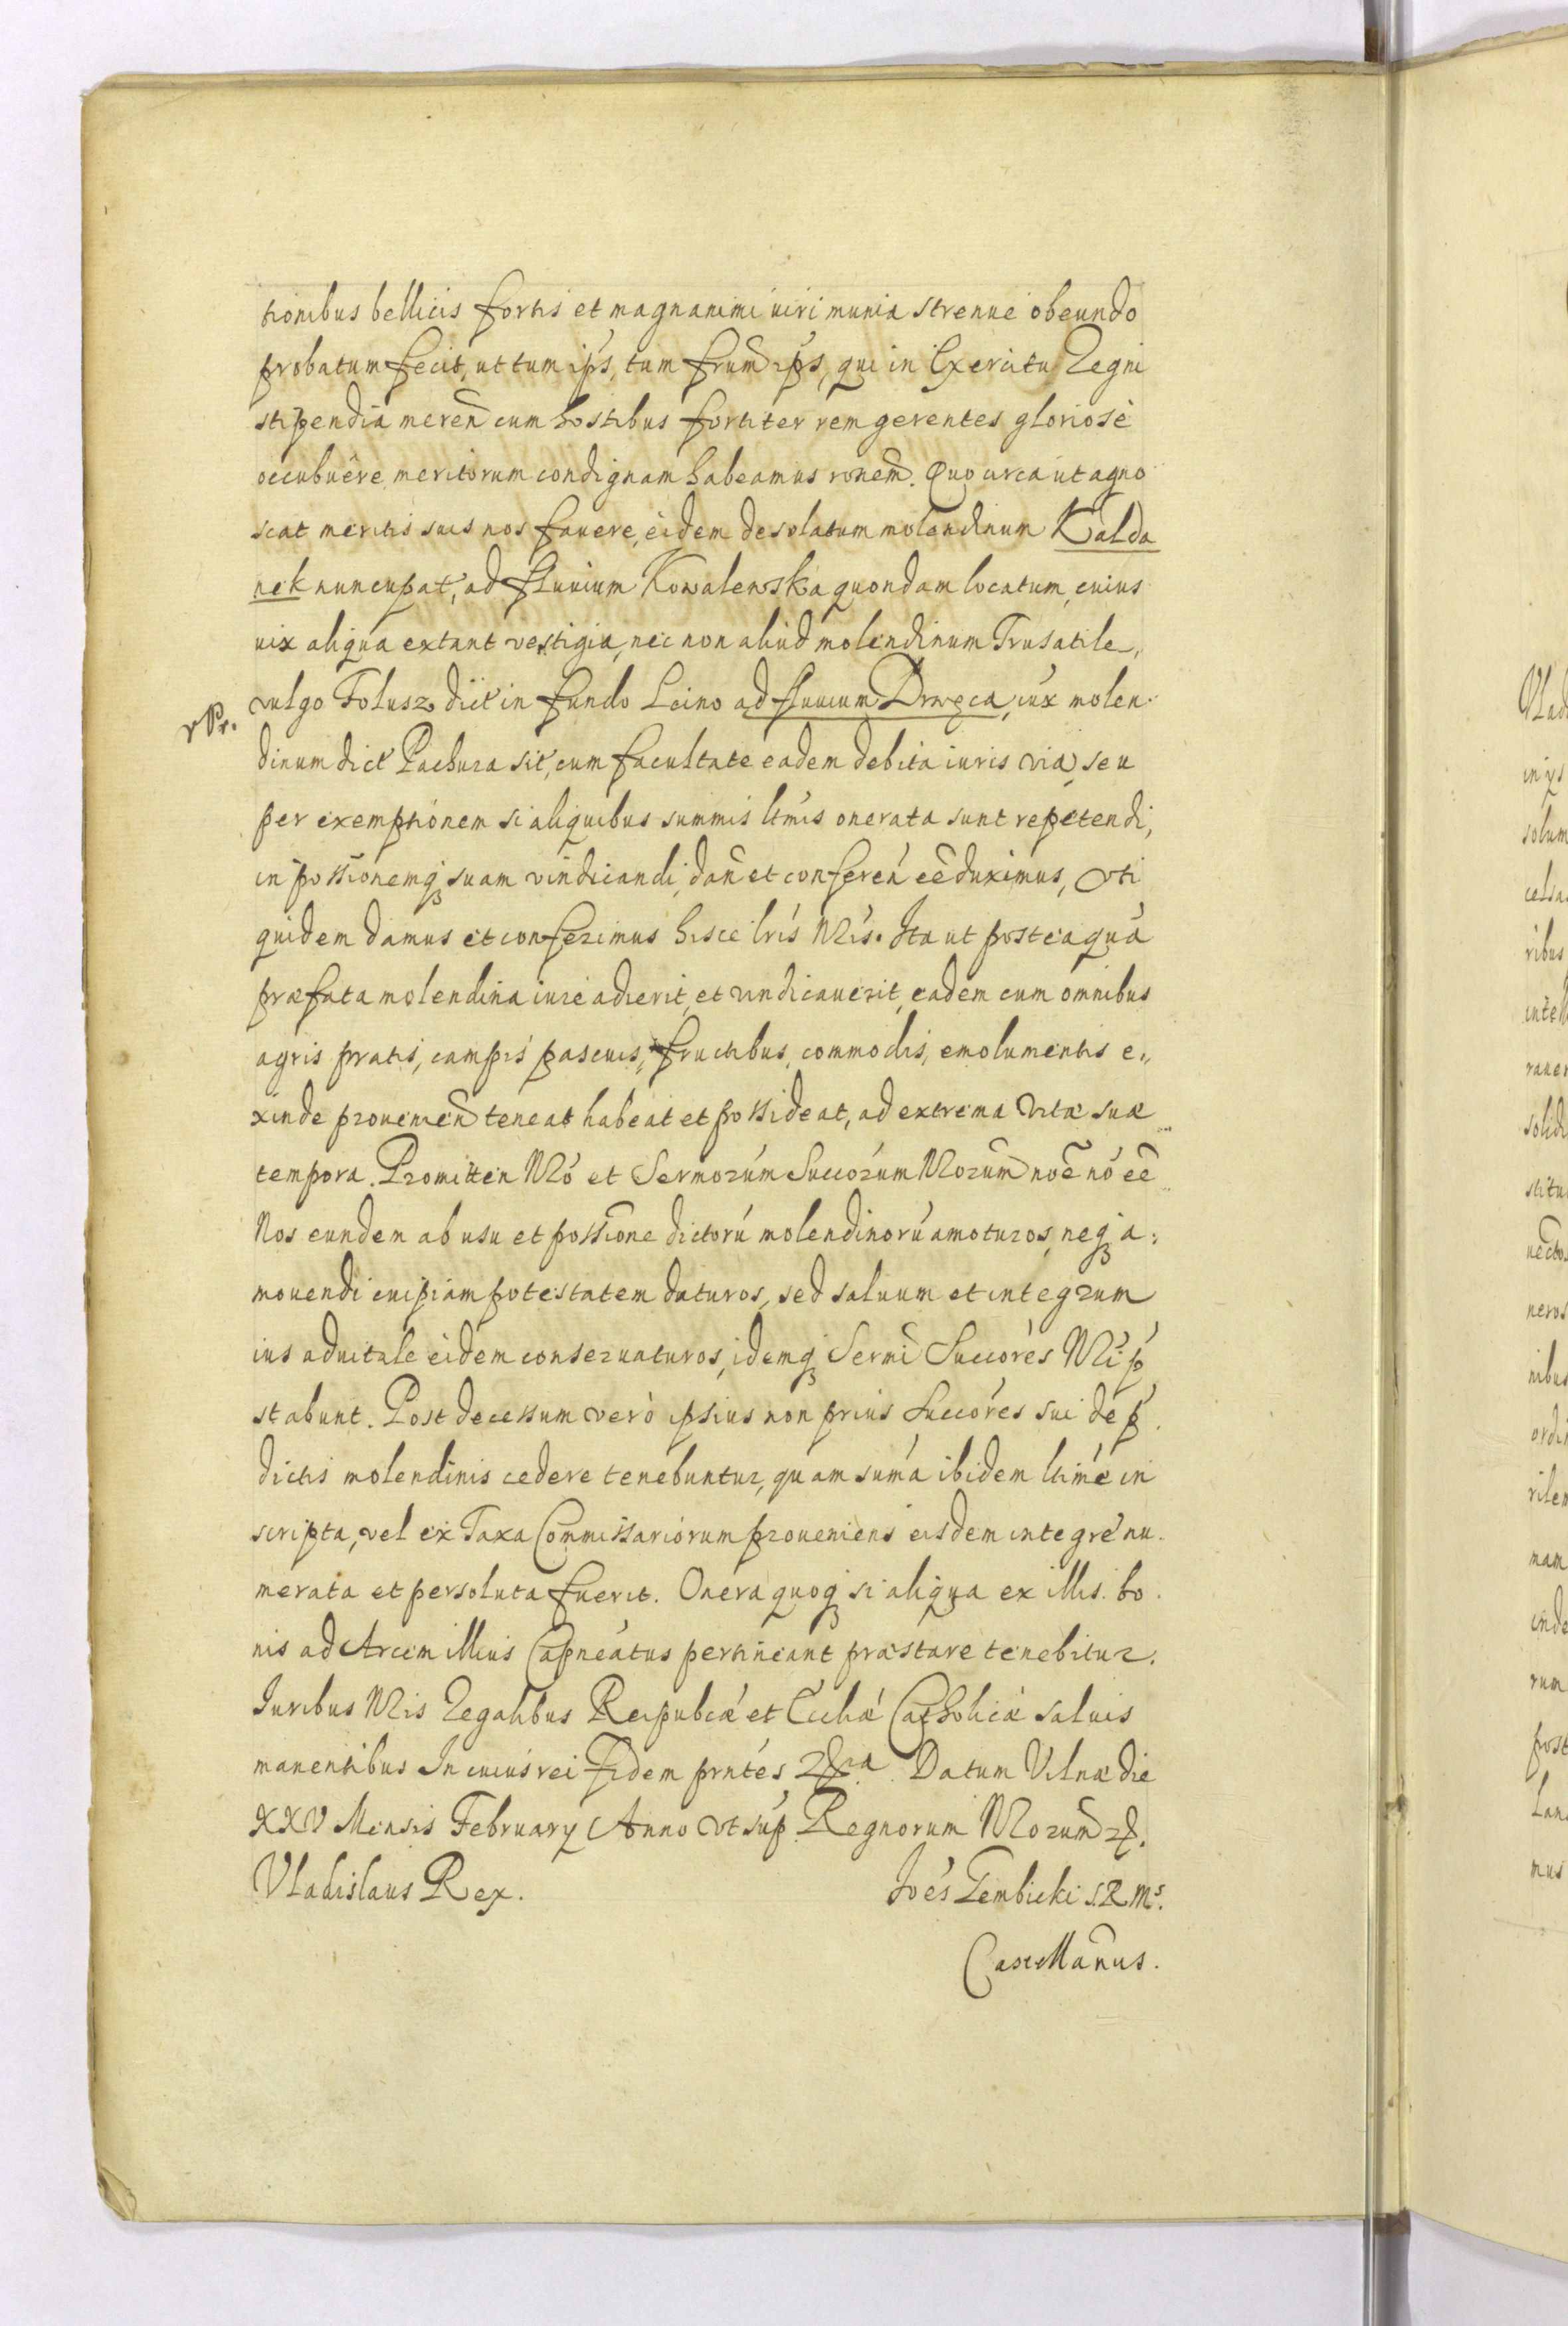 tionibus bellicis fortis et magnanimi viri munia strenue obeundo
probatum fecit, ut tum ips, tum frum ips, qui in Exercitu Regni
stipendia meren cum hostibus fortiter rem gerentes gloriosè
occubuêre meritorum condignam habeamus ronem. Quo circa ut agno
scat meritis suis nos favere, eidem desolatum molendinum Kalda
nek nuncupat, ad fluuium Kowalewska quondam locatum, cuius
uix aliqua extant vestigia, nec non aliud molendinum Trusatile,
vulgo Folusz dict in fundo Leino ad fluuium Drwęca, iux molen
vPr.
dinum dict Pachura sit, cum facultate eadem debita iuris via, seu
per exemptionem si aliquibus summis ltimis onerata sunt repetendi,
in possionemq suam vindicandi, dan et conferen eê duximus, Vti
quidem damus et conferimus hisce lris Nris. Ita ut posteaquá
præfata molendina iure adierit, et vindicauerit, eadem cum omnibus
agris pratis, campis pascuis, fructibus, commodis, emolumentis e
xinde prouenien teneat habeat et possideat, ad extrema vitæ suæ
tempora. Promitten Nro et Sermorúm Succorum Nrorum noê nó eê
Nos eundem ab usu et possione dictorú molendinorú amoturos, neq a:
mouendi cuipiam potestatem daturos, sed saluum et integrum
ius aduitale eidem conseruaturos, idemq Sermi Succores Nri p
stabunt. Post decessum verò ipsius non prius Succóres sui de p
dictis molendinis cedere tenebuntur, quam suma ibidem ltimé in
scripta, vel ex Taxa Commissariorum proueniens eisdem integrè nu
merata et persoluta fuerit. Onera quoq si aliqua ex illis bo
nis ad Arcem illius Capneatus pertineant præstare tenebitur.
Iuribus Nris Regalibus Reipubcæ et Eccliæ Catholicæ saluis
manentibus In cuius rei fidem prntés Datum Vilnæ die
XXV Mensis February Anno vt sup Regnorum Nrorum
Vladislaus Rex.
Joês Gembicki S.R.Ms.
Castellanus.